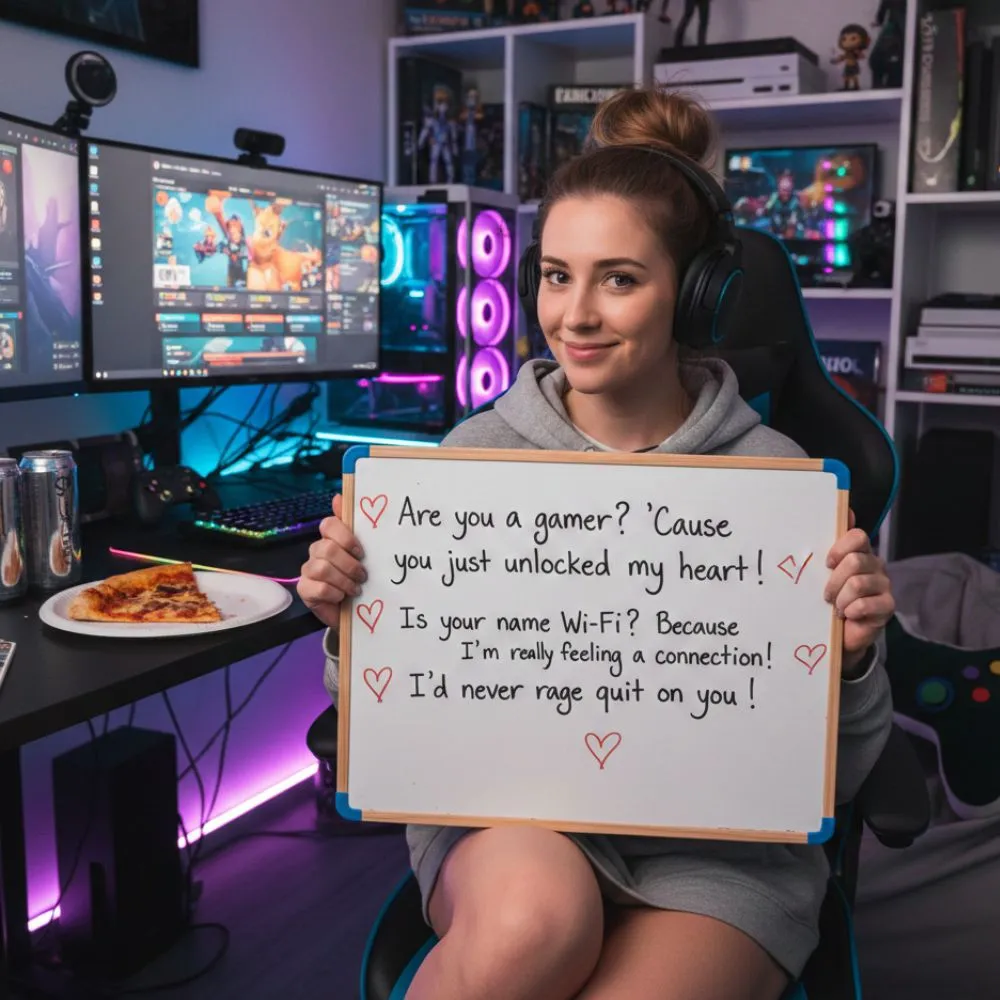 Are you a gamer? 'Cause
you just unlocked my heart!
Is your name Wi-Fi? Because
I'm really feeling a connection!
I'd never rage quit on you!